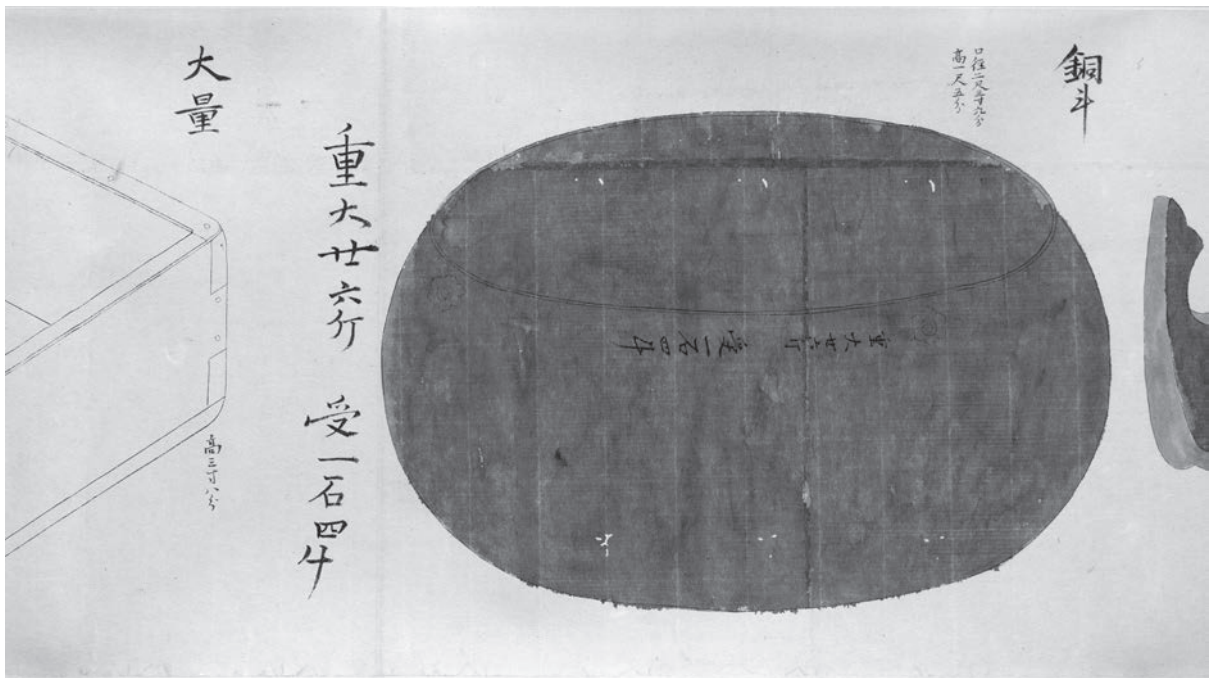 銅斗
口径二尺五寸九分
高一尺五分
重大廿六斤　受一石四斗
重大廿六斤　受一石四斗
大量
高三寸八分